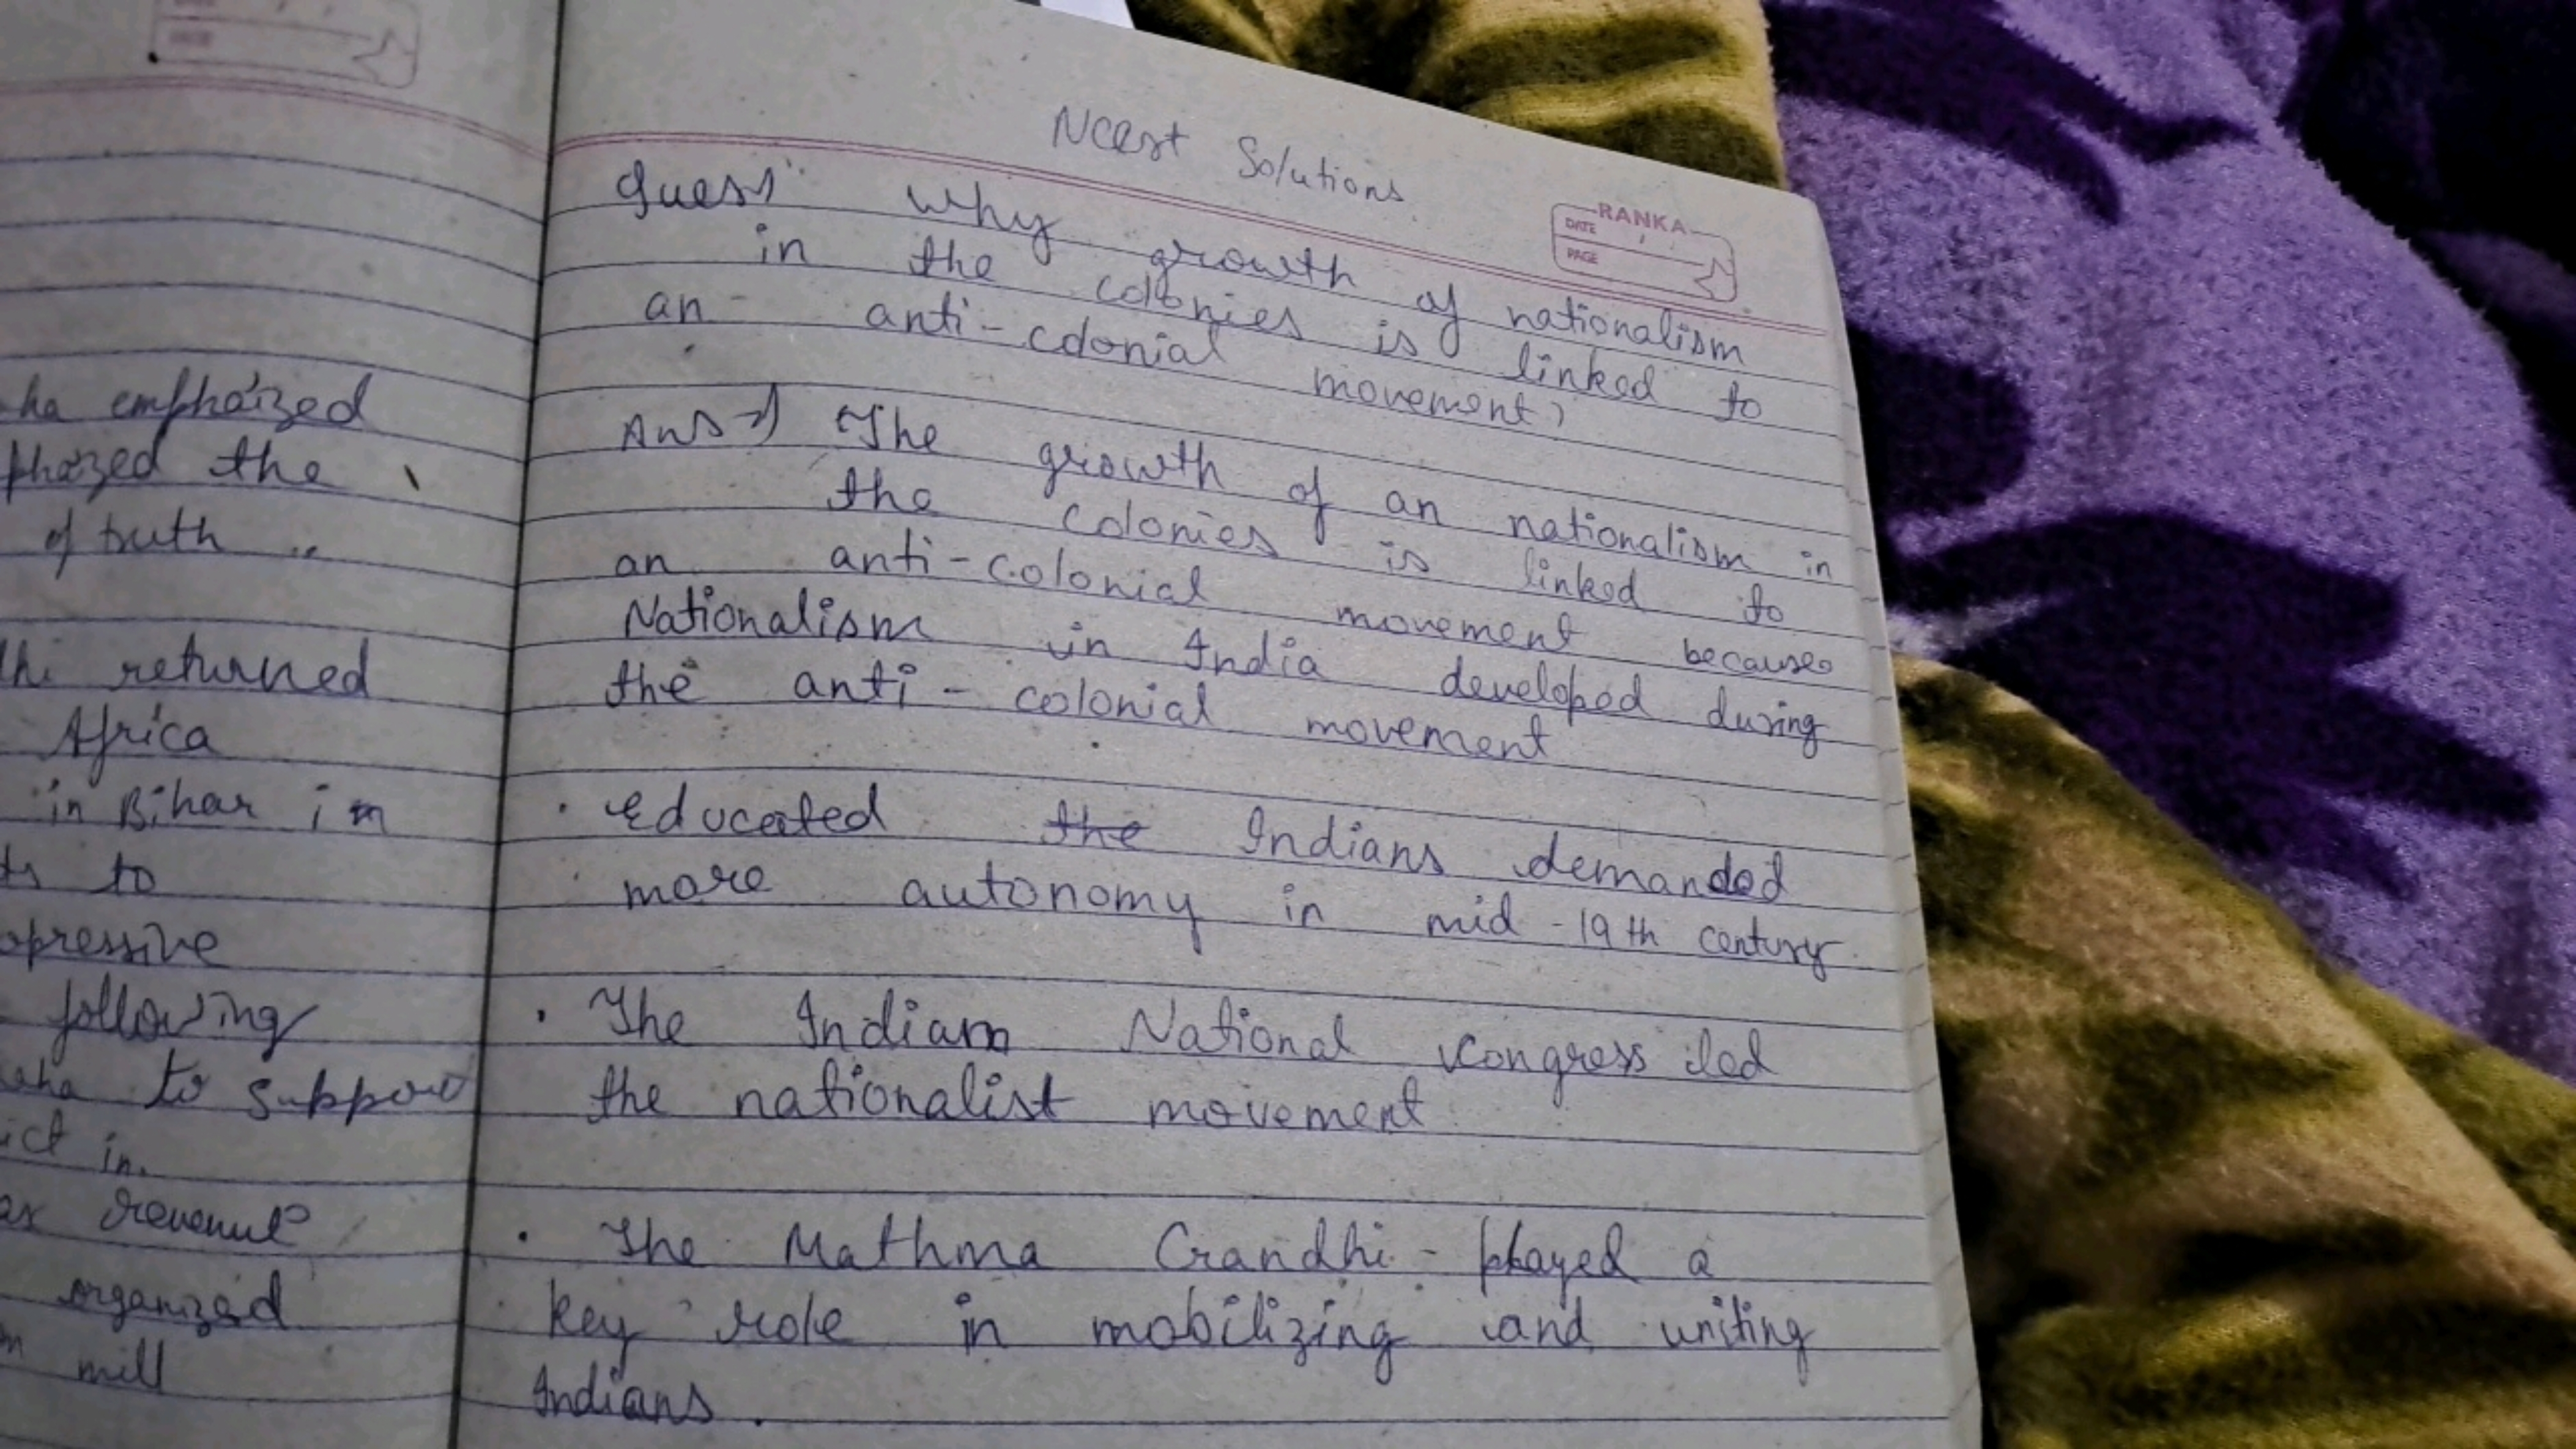 ha emphaized
phazed the
of truth ..
hi returned
Africa
in Bihar in
ts to
opressive
following
aha to support
ict in.
ax revenue
organized
m mill
Ncert Solutions
RANKA
DATE
PAGE
Ques1 Why growth of nationalism
in the colonies is linked to
an anti-colonial movement?
Ans→) The growth of an nationalism in
the colonies is linked to
an anti-colonial movement because
Nationalism in India developed during
the anti-colonial movement
• Educated the Indians demanded
more autonomy in mid-19th century.
• The Indian National Congress led
the nationalist movement
• The Mathma Gandhi - played a
key role in mobilizing and uniting
Indians.